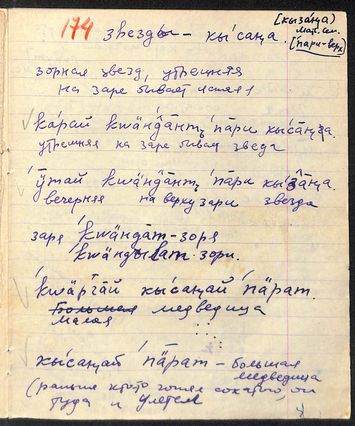 174 звезды – кы́саңа. (кыза́ңа)
мал. сы.
(пари-верх)
зорная звезд, утрешняя
на заре бывает
ка́рай кwа̄нда̄нтъ па̄ри кыса́ңга.
утрешняя на заре бывая звезда
ӯтай кwа̄нда̄нтъ па̄ри кыза̄ңа.
вечерняя на верху зари звезда
заря кwа̄нда̄т-зоря
кwа̄нды̄лат-зори.
кwа̄ргай кы́саңай па̄рат.
Большая медведица
малая
кы́саңай па̄рат – большая
медведица
(раньше кто-то гонял сохатого, он
туда и улетел